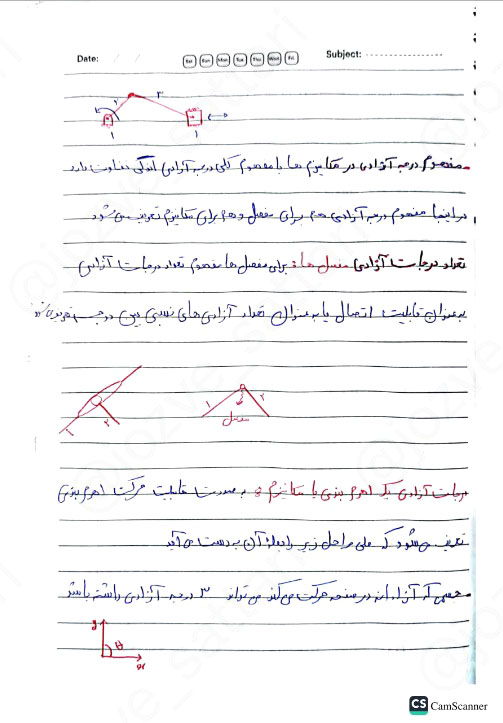 Date: / /
Sat Sun Mon Tue Thu Wed Fri
Subject:
۲ ۳
۱ ۱
مفهوم درجه آزادی در مکانیزم ها با مفهوم کلی درجه آزادی اندکی تفاوت دارد
در اینجا مفهوم درجه آزادی هم برای مفصل و هم برای مکانیزم تعریف می شود
تعداد درجات آزادی مفصل ها: برای مفصل ها مفهوم تعداد درجات آزادی
به عنوان قابلیت اتصال یا به عنوان تعداد آزادی های نسبی بین دو جسم
۱ ۲
۱ ۲
مفصل
درجات آزادی یک اهرم بندی یا مکانیزم: به صورت قابلیت حرکت اهرم بندی
تعریف می شود که طی مراحل زیر رابطه آن به دست می آید
جسمی که آزادانه در صفحه حرکت می کند می تواند ۳ درجه آزادی داشته باشد
y
θ
x
CS CamScanner